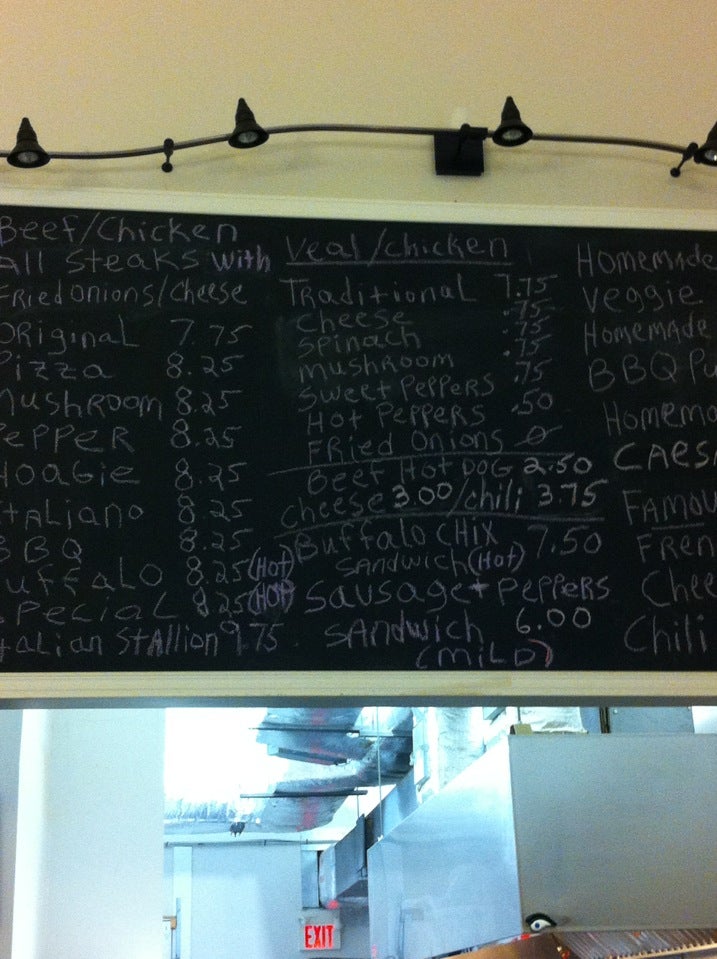 Beef/Chicken
All Steaks with
Fried Onions/Cheese
Original 7.75
Pizza 8.25
Mushroom 8.25
Pepper 8.25
Hoagie 8.25
Italiano 8.25
BBQ 8.25
Buffalo 8.25 (Hot)
Special 8.25 (Hot)
Italian Stallion 9.75
Veal/chicken
Traditional 7.75
Cheese .75
Spinach .75
Mushroom .75
Sweet Peppers .75
Hot Peppers .50
Fried Onions 0
Beef Hot Dog 2.50
Cheese 3.00/chili 3.75
Buffalo Chix 7.50
Sandwich (Hot)
Sausage + Peppers
Sandwich 6.00
(Mild)
Homemade
Veggie
Homemade
BBQ Pu
Homema
Caesa
Famou
Fren
Chee
Chili
EXIT